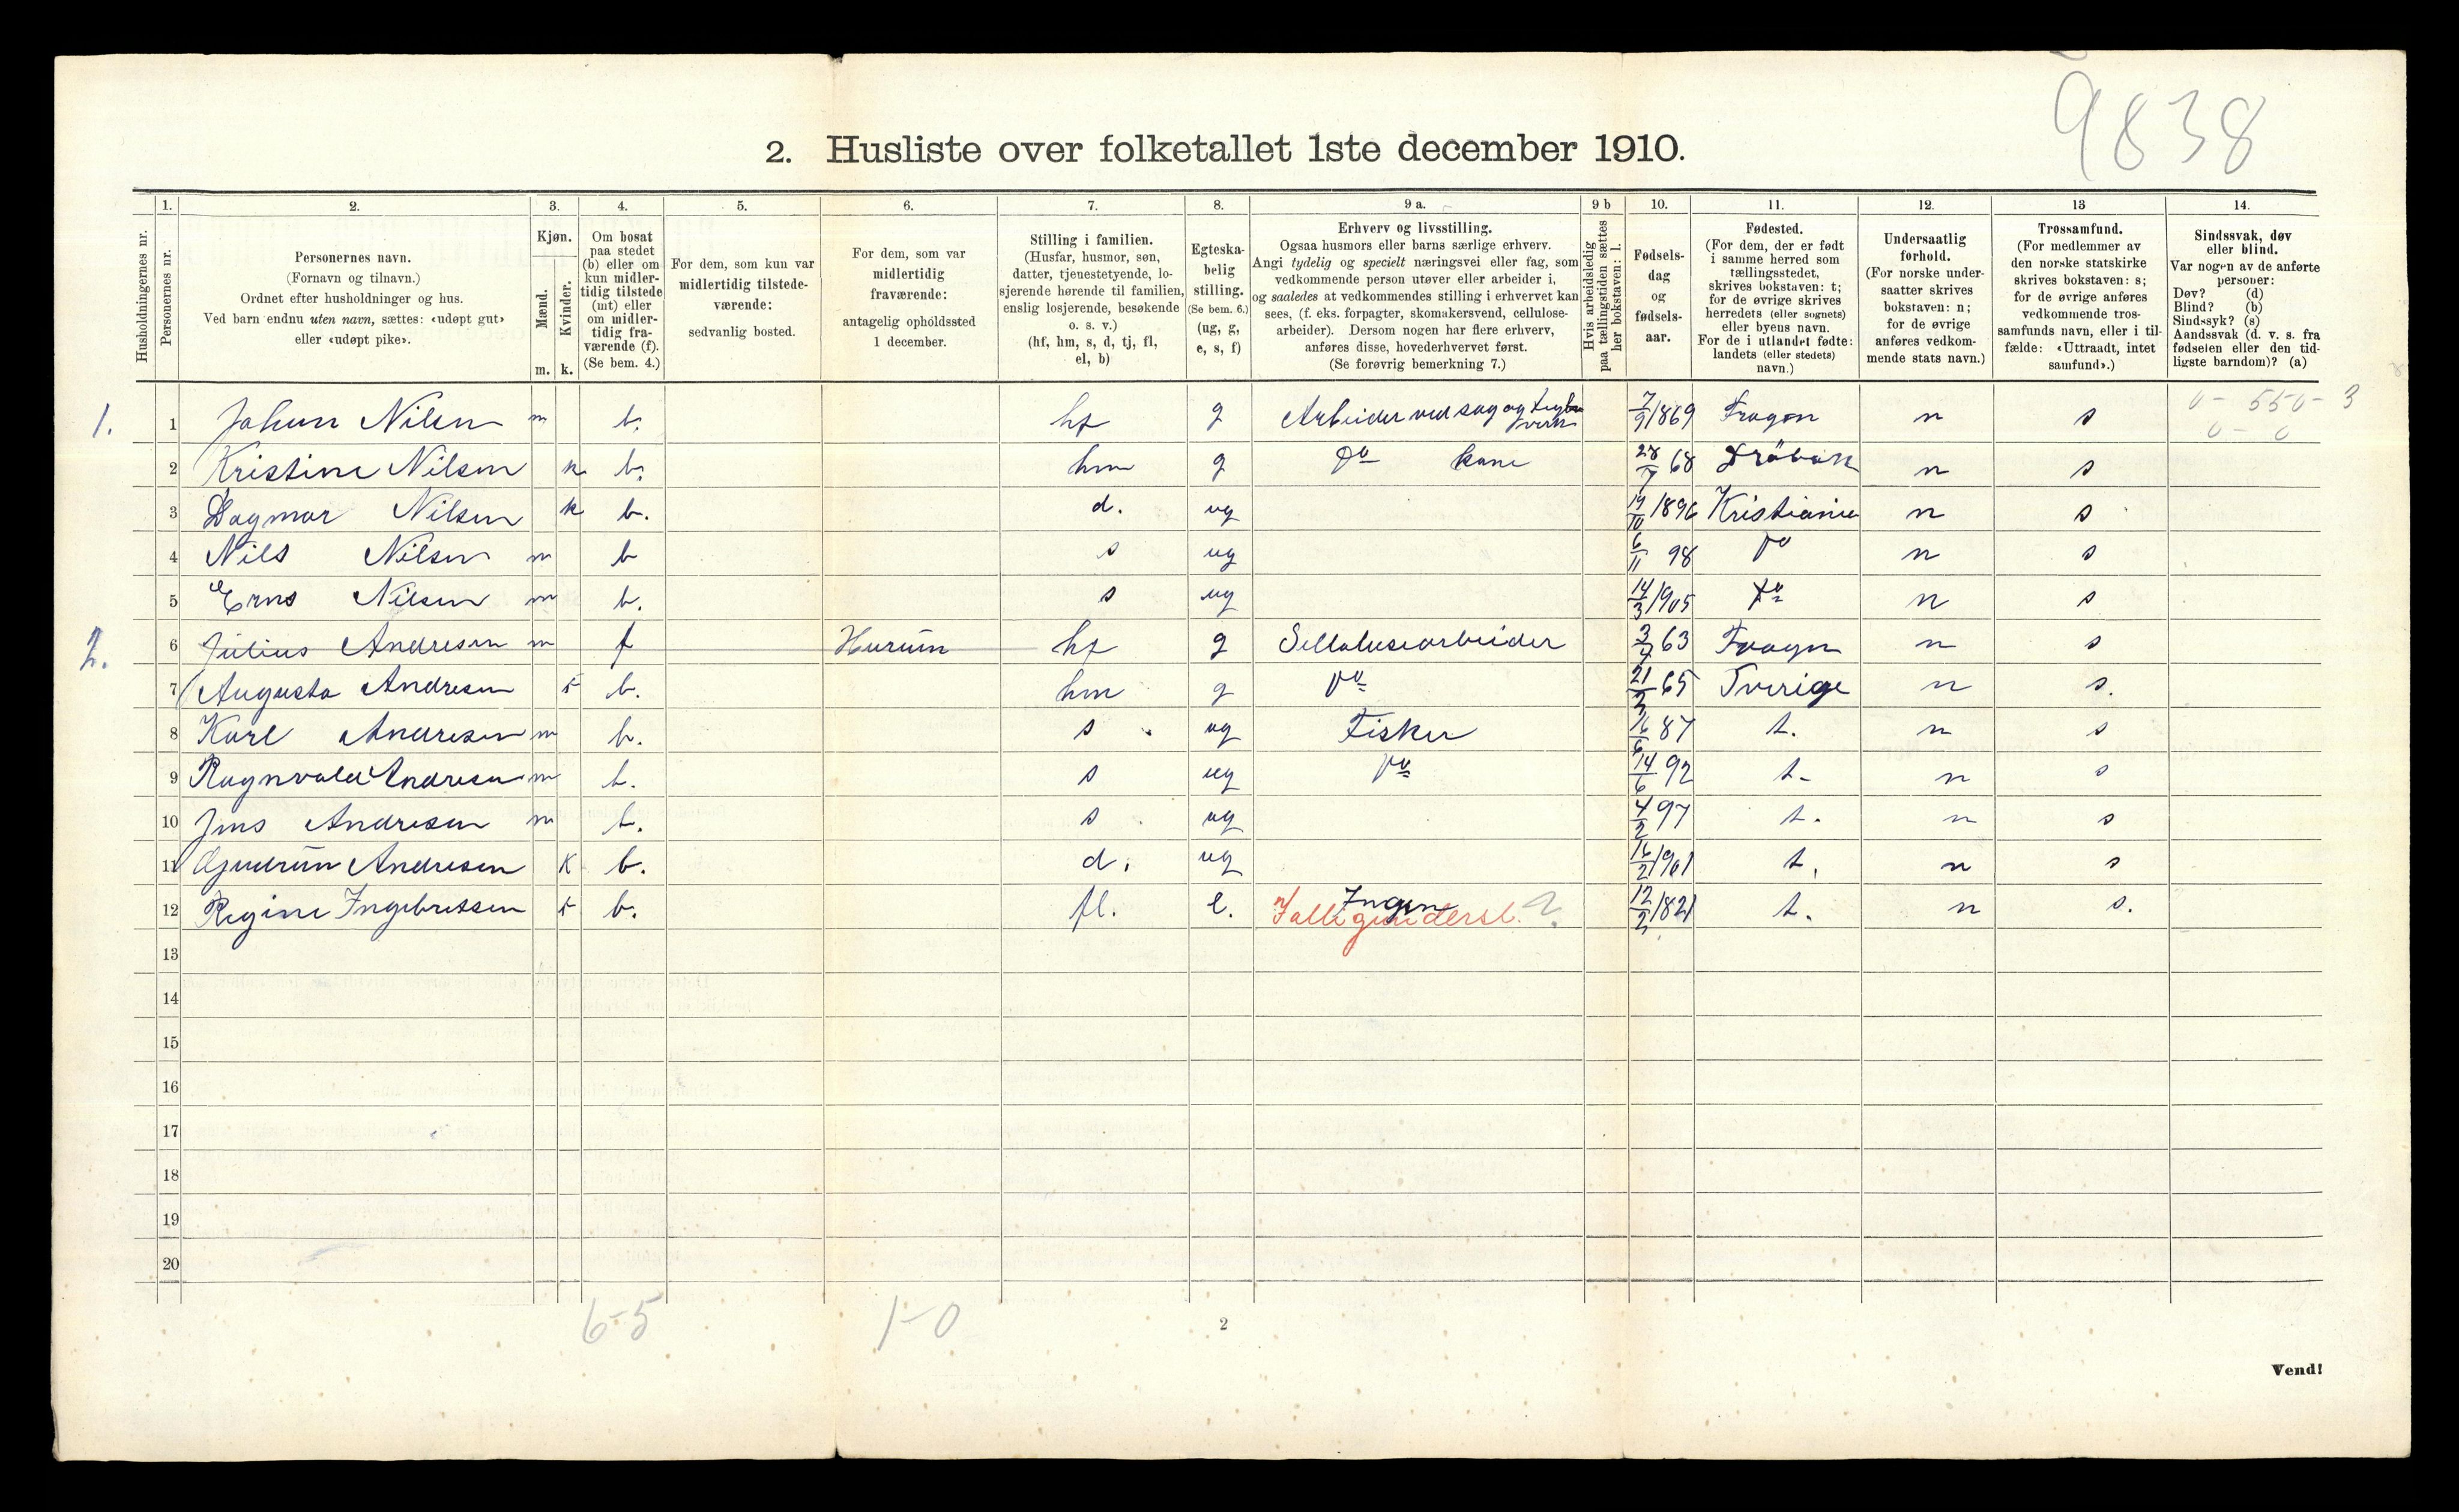 9838
2. Husliste over folketallet 1ste december 1910.
Husholdningernes nr.
1.
Personernes nr.
2.
Personernes navn.
(Fornavn og tilnavn.)
Ordnet efter husholdninger og hus.
Ved barn endnu uten navn, sættes: «udøpt gut»
eller «udøpt pike».
3.
Kjøn.
Mænd.
Kvinder.
m. k.
4.
Om bosat
paa stedet
(b) eller om
kun midler-
tidig tilstede
(mt) eller
om midler-
tidig fra-
værende (f).
(Se bem. 4.)
5.
For dem, som kun var
midlertidig tilstede-
værende:
sedvanlig bosted.
6.
For dem, som var
midlertidig
fraværende:
antagelig opholdssted
1 december.
7.
Stilling i familien.
(Husfar, husmor, søn,
datter, tjenestetyende, lo-
sjerende hørende til familien,
enslig losjerende, besøkende
o. s. v.)
(hf, hm, s, d, tj, fl,
el, b)
8.
Egteska-
belig
stilling.
(Se bem. 6.)
(ug, g,
e, s, f)
9 a.
Erhverv og livsstilling.
Ogsaa husmors eller barns særlige erhverv.
Angi tydelig og specielt næringsvei eller fag, som
vedkommende person utøver eller arbeider i,
og saaledes at vedkommendes stilling i erhvervet kan
sees, (f. eks. forpagter, skomakersvend, cellulose-
arbeider). Dersom nogen har flere erhverv,
anføres disse, hovederhvervet først.
(Se forøvrig bemerkning 7.)
9 b
Hvis arbeidsledig
paa tællingstiden sættes
her bokstaven: l.
10.
Fødsels-
dag
og
fødsels-
aar.
11.
Fødested.
(For dem, der er født
i samme herred som
tællingsstedet,
skrives bokstaven: t;
for de øvrige skrives
herredets (eller sognets)
eller byens navn.
For de i utlandet fødte:
landets (eller stedets)
navn.)
12.
Undersaatlig
forhold.
(For norske under-
saatter skrives
bokstaven: n;
for de øvrige
anføres vedkom-
mende stats navn.)
13
Trossamfund.
(For medlemmer av
den norske statskirke
skrives bokstaven: s;
for de øvrige anføres
vedkommende tros-
samfunds navn, eller i til-
fælde: «Uttraadt, intet
samfund».)
14.
Sindssvak, døv
eller blind.
Var nogen av de anførte
personer:
Døv? (d)
Blind? (b)
Sindssyk? (s)
Aandssvak (d. v. s. fra
fødselen eller den tid-
ligste barndom)? (a)
1. 1 Johan Nilsen m b. hf g Arbeider ved sag og 7/9 1869 Frogn n s 0 - 550 - 3
0 - 0
2 Kristine Nilsen k b. hm g Do kone 28/7 68 Drøbak n s
3 Dagmar Nilsen k b. d. ug 19/10 1896 Kristiania n s
4 Nils Nilsen m b s ug 6/11 98 Do n s
5 Erns Nilsen m b. s ug 14/3 1905 Do n s
2. 6 Julius Andresen m f Hurum hf g Sellolusearbeider 3/7 63 Frogn n s
7 Augusta Andresen k b. hm g Do 21/3 65 Sverige n s.
8 Karl Andresen m b. s ug Fisker 16/6 87 t. n s
9 Ragnvald Andresen m b. s ug Do 14/6 92 t. n s
10 Jens Andresen m b. s ug 4/2 97 t. n s
11 Gudrun Andresen k b. d. ug 16/2 1901 t. n s
12 Regine Ingebretsen k b. fl. e. Ingen 12/2 1821 t. n s.
13
14
15
16
17
18
19
20
6-5
1-0
2
Vend!